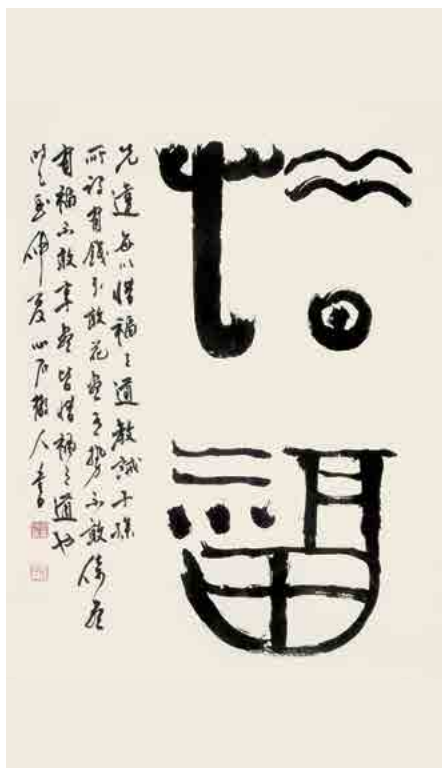 惜福
先達每以惜福之道教誡子孫
所謂有錢不敢花盡有勢不敢倚盡
有福不敢享盡皆惜福之道也
仲夏心石散人書